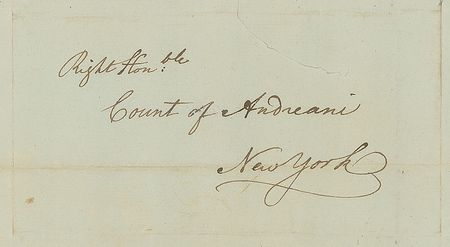 Right Hon:ble
Count of Andreani
New York